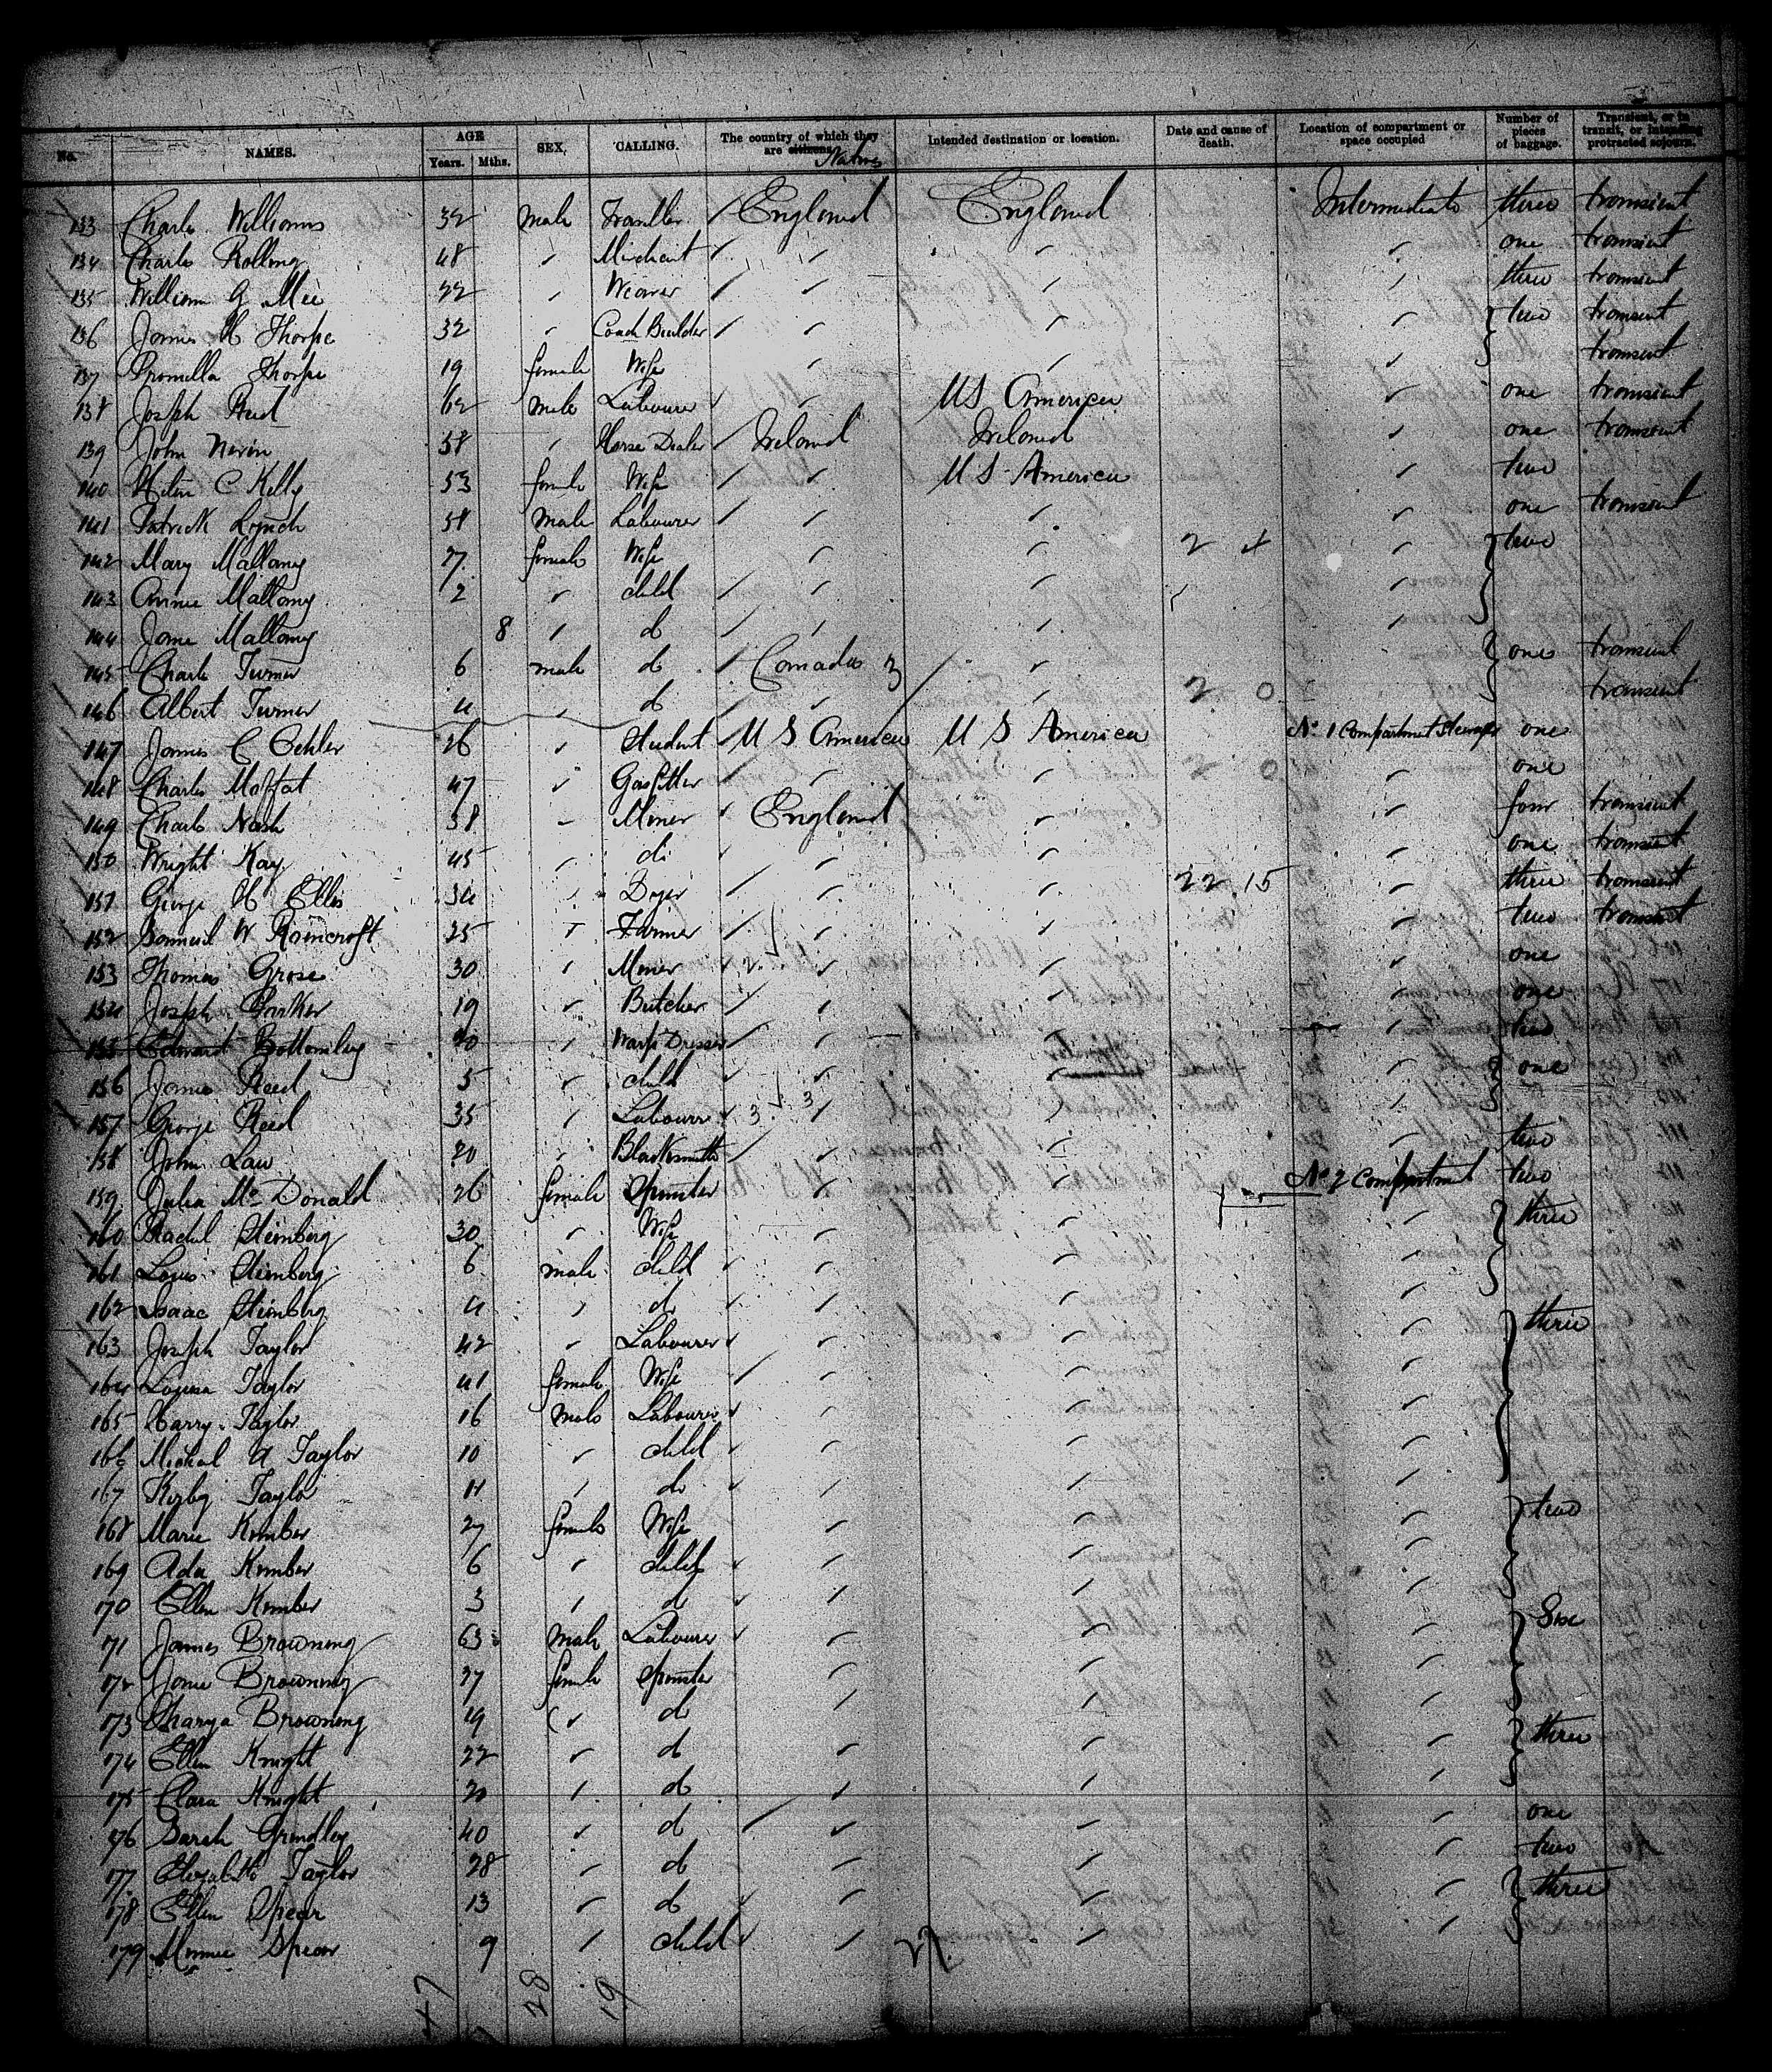 No. NAMES. AGE Years. Mths. SEX. CALLING. The country of which they are citizens Natives Intended destination or location. Date and cause of death. Location of compartment or space occupied Number of pieces of baggage. Transient, or in transit, or intending protracted sojourn.
133 Charles Williams 32 male Traveller England England Intermediate three transient
134 Charles Rolling 48 " Merchant " " " one transient
135 William G Mee 22 " Weaver " " " three transient
136 James H Thorpe 32 " Coach Builder " " " two transient
137 Thorpe 19 female Wife " " " transient
138 Joseph Reid 62 male Labourer " US America " one transient
139 John Nevin 58 " Horse Dealer Ireland Ireland " one transient
140 Helen C Kelly 53 female Wife " U S America " two
141 Patrick Lynch 58 male Labourer " " " one transient
142 Mary Mallony 27 female Wife " " 2 " two
143 Annie Mallony 2 " child " " "
144 Jane Mallony 8 " do " " "
145 Charles Turner 6 male do Canada 3 " one transient
146 Albert Turner 4 " do " " 2 0 transient
147 James C Oehler 26 " Student U S America U S America No 1 Compartment Steerage one
148 Charles Moffat 47 " Gasfitter " " 2 0 " one
149 Charles Nash 38 " Miner England " " four transient
150 Wright Kay 45 " do " " " one transient
151 George H Ellis 34 " Dyer " " 22 15 " three transient
152 Samuel W Raincroft 25 " Farmer " " " two transient
153 Thomas Grose 30 " Miner 2 " " " one
154 Joseph Parker 19 " Butcher " " " one
155 Edward Bottomley 20 " Warp Dresser " " " two
156 James Reed 5 " child " " " one
157 George Reed 35 " Labourer 3 3 " " "
158 John Law 20 " Blacksmith " " " two
159 Julia McDonald 26 female Spinster " " No 2 Compartment two
160 Rachel Steinberg 30 " Wife " " " three
161 Louis Steinberg 6 male child " " "
162 Isaac Steinberg 4 " do " " "
163 Joseph Taylor 42 " Labourer " " " three
164 Louisa Taylor 41 female Wife " " "
165 Harry Taylor 16 male Labourer " " "
166 Michal A Taylor 10 " child " " "
167 Kirby Taylor 11 " do " " "
168 Marie Kimber 27 female Wife " " " two
169 Ada Kimber 6 " child " " "
170 Ellen Kimber 3 " do " " "
171 James Browning 63 male Labourer " " " Six
172 Jane Browning 27 female Spinster " " "
173 Browning 19 " do " " "
174 Ellen Knight 22 " do " " " three
175 Clara Knight 20 " do " " "
176 Sarah Grindley 40 " do " " " one
177 Elizabeth Taylor 28 " do " " " two
178 Ellen Spear 13 " do " " " three
179 Minnie Spear 9 " child " " "
47 28 19